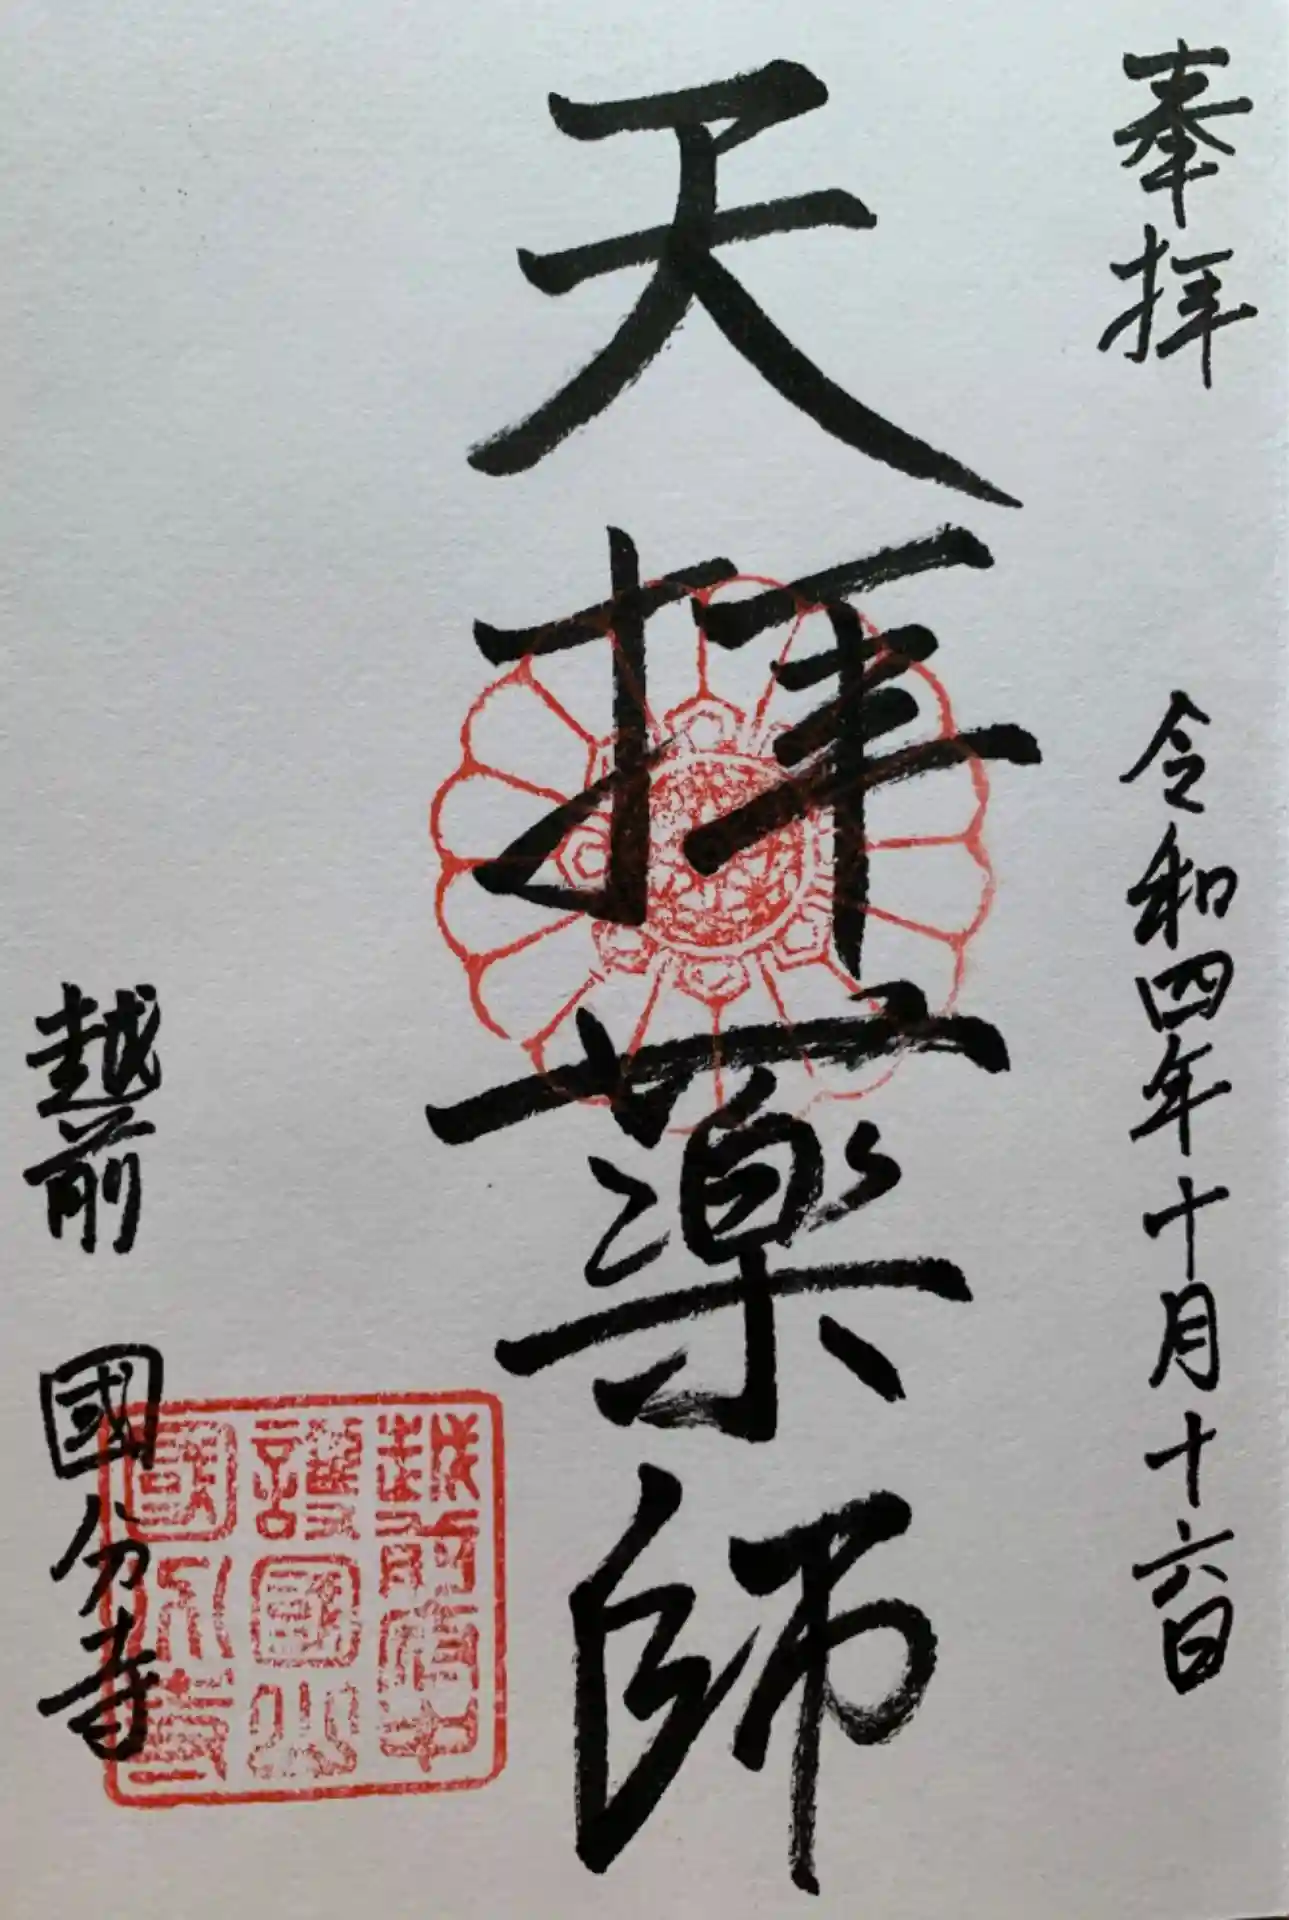 奉拝 令和四年十月十六日
天拝薬師
越前 國分寺
越前府中
護國山
國分寺